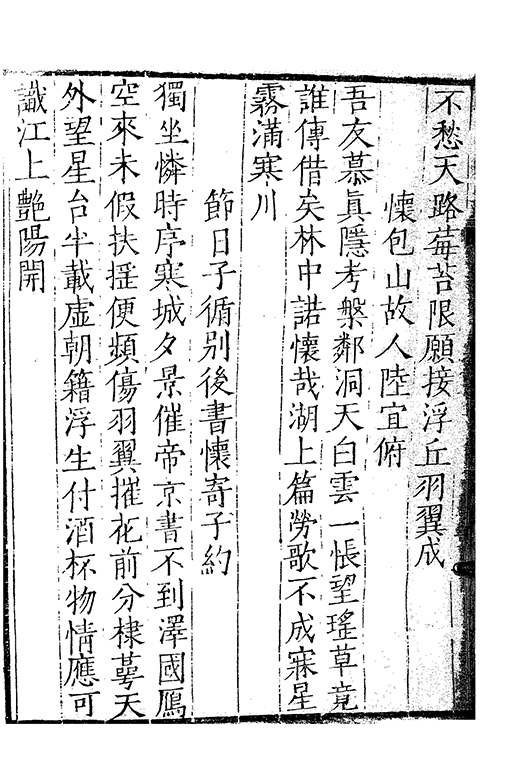 不愁天路莓苔限願接浮丘羽翼成
懷包山故人陸宜俯
吾友慕真隱考槃鄰洞天白雲一悵望瑤草竟
誰傳借矣林中諾懷哉湖上篇勞歌不成寐星
霧滿寒川
節日子循別後書懷寄子約
獨坐憐時序寒城夕景催帝京書不到澤國鴈
空來未假扶搖便頻傷羽翼摧花前分棣萼天
外望星台半載虛朝籍浮生付酒杯物情應可
識江上艷陽開